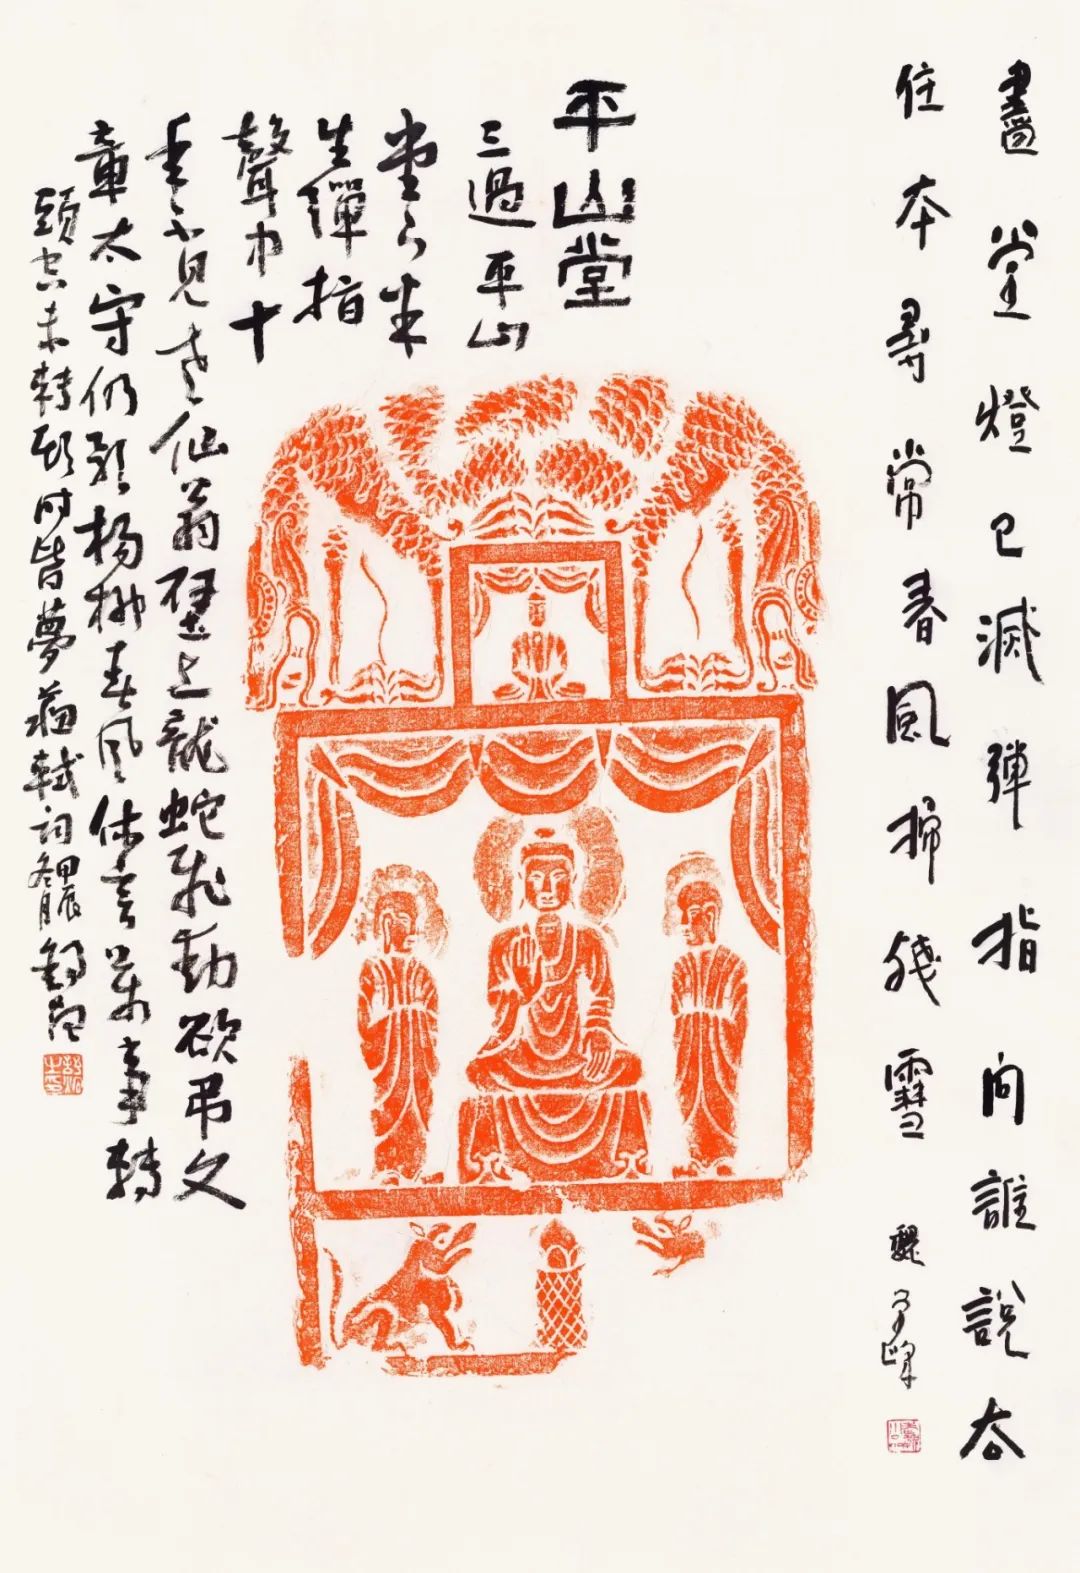 畫堂燈已滅彈指向誰說去
住本尋常春風掃殘雪 魏峰
平山堂
三過平山
堂下半
生彈指
聲中十
年不見老仙翁壁上龍蛇飛動欲吊文
章太守仍歌楊柳春風休言萬事轉
頭空未轉頭時皆夢蘇軾詞甲辰
冬月